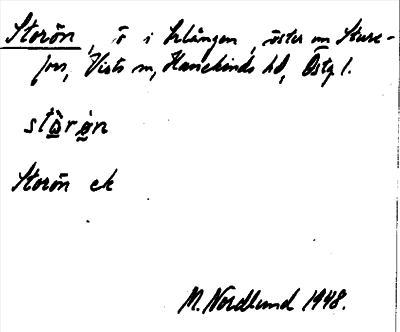 Storön, ö i Erlången, öster om Sture-
fors, Vists sn, Hanekinds hd, Östg l.
stὰrὠn
Storön ek
M. Nordlund 1948.